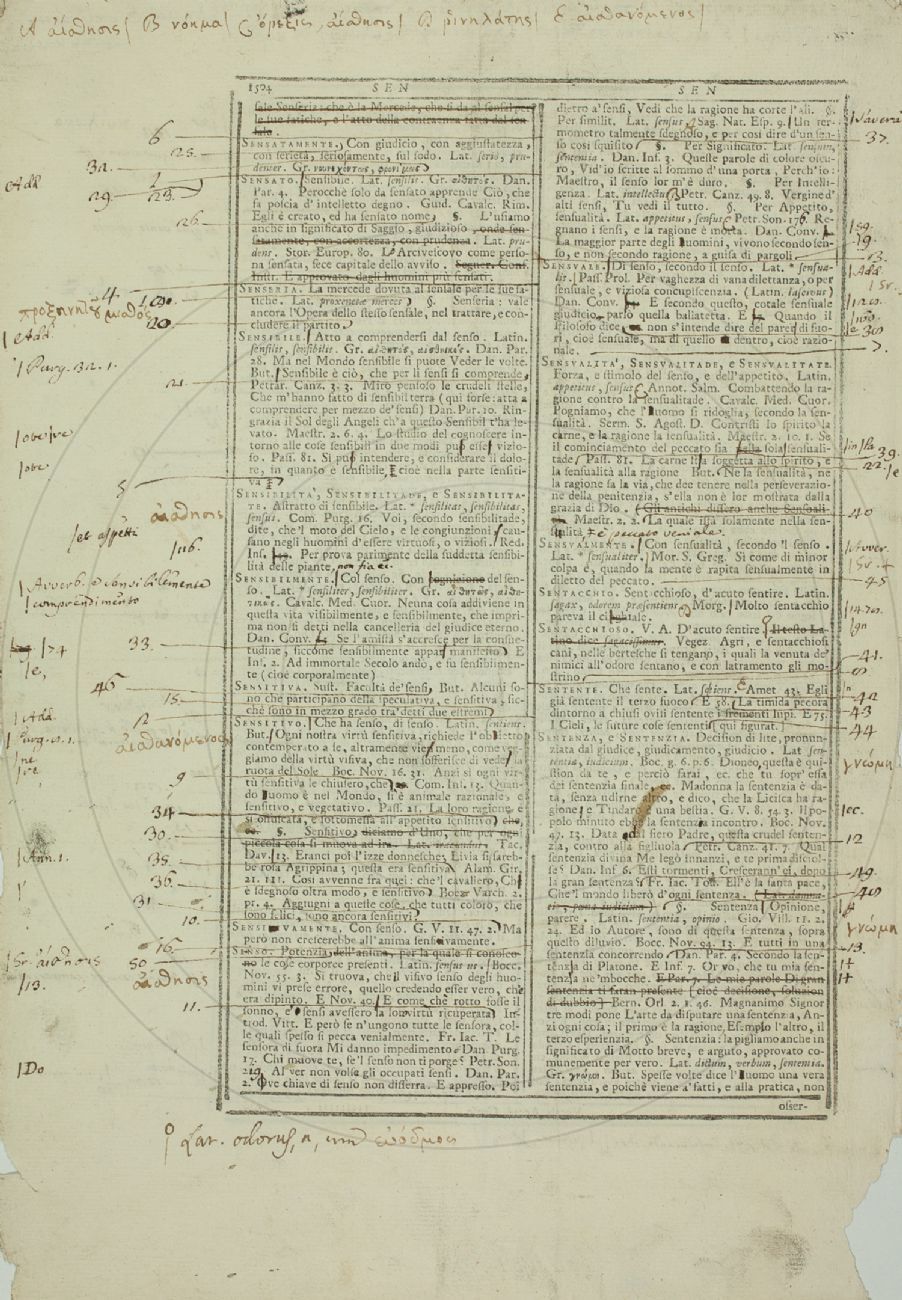 Α αἴσθησις / Β νόημα / C ὄρεξις, αἴσθησις / D ῥινηλάτης / Ε αἰσθανόμενος /
1504 SEN
SEN
sale Senseria: che è la Mercede, che si da al sensal per
le sue fatiche, e l'atto della contratta fatta dal sen-
sale.
SENSATAMENTE, Con giudicio, con aggiustatezza,
con serietà, seriosamente, sul sodo. Lat. serio, pru-
denter. Gr.
SENSATO. Sensibile. Lat. sensilis. Gr. Dan.
Par. 4. Perocchè solo da sensato apprende Ciò, che
fa poscia d'intelletto degno. Guid. Cavalc. Rim.
Egli è creato, ed ha sensato nome, §. L'usiamo
anche in significato di Saggio, giudizioso, onde sen-
satamente, con accortezza, con prudenza. Lat. pru-
dens. Stor. Europ. 80. L'Arcivescovo come perso-
na sensata, fece capitale dello avviso. Segner. Conf.
Instr. E approvato dagli huomini più sensati.
SENSERIA. La mercede dovuta al sensale per le sue fa-
tiche. Lat. proxenetae merces §. Senseria: vale
ancora l'Opera dello stesso sensale, nel trattare, e con-
cludere il partito.
SENSIBILE. Atto a comprendersi dal senso. Latin.
sensilis, sensibilis. Gr. Dan. Par.
28. Ma nel Mondo sensibile si puote Veder le volte.
But. Sensibile è ciò, che per li sensi si comprende,
Petrar. Canz. 3. 3. Miro pensoso le crudeli stelle,
Che m'hanno fatto di sensibil terra (qui forse: atta a
comprendere per mezzo de' sensi) Dan. Pur. 10. Rin-
grazia il Sol degli Angeli ch'a questo Sensibil t'ha le-
vato. Maestr. 2. 6. 4. Lo studio del cognoscere in-
torno alle cose sensibili in due modi può esser vizio-
so. Pass. 81. Si può intendere, e considerare il dolo-
re, in quanto è sensibile, cioè nella parte sensiti-
va
SENSIBILITA', SENSIBILITADE, e SENSIBILITA-
TE. Astratto di sensibile. Lat. * sensilitas, sensibilitas,
sensus. Com. Purg. 16. Voi, secondo sensibilitade,
dite, che'l moto del Cielo, e le congiunzioni cau-
sano negli huomini d'essere virtuosi, o viziosi. Red.
Ins. Per prova parimente della suddetta sensibi-
lità delle piante, non fia ec.
SENSIBILMENTE. Col senso. Con cognizione del sen-
so. Lat. * sensiliter, sensibiliter. Gr.
Cavalc. Med. Cuor. Neuna cosa addiviene in
questa vita visibilmente, e sensibilmente, che impri-
ma non si detti nella cancelleria del giudice eterno.
Dan. Conv. Se l'amistà s'accresce per la consue-
tudine, siccome sensibilmente appar manifesto E
Inf. 2. Ad immortale Secolo andò, e fu sensibilmen-
te (cioè corporalmente)
SENSITIVA. Sust. Facultà de' sensi, But. Alcuni so-
no che participano della speculativa, e sensitiva, sic-
chè sono in mezzo grado tra' detti due estremi
SENSITIVO. Che ha senso, di senso. Latin. sentiens.
But. Ogni nostra virtù sensitiva, richiede l'obbietto
contemperato a se, altramente vien meno, come veg-
giamo della virtù visiva, che non sofferisce di veder la
ruota del Sole Boc. Nov. 16. 31. Anzi sì ogni vir-
tù sensitiva le chiusero, che Com. Inf. 13. Quan-
do huomo è nel Mondo, sì è animale razionale, e
sensitivo, e vegetativo. Pass. 21. La loro ragione è
sì offuscata, e sottomessa all'appetito sensitivo che,
ec. §. Sensitivo, diciamo d'Uno, che per ogni
piccola cosa si muova ad ira. Lat. iracundus Tac.
Dav. 13. Eranci poi l'izze donnesche, Livia si sareb-
be rosa Agrippina; questa era sensitiva Alam. Gir.
21. 111. Così avvenne fra quei: che'l cavaliero, Ch'
è sdegnoso oltra modo, e sensitivo Boez. Varch. 2.
pr. 4. Aggiugni a queste cose, che tutti coloro, che
sono felici, sono ancora sensitivi
SENSIVAMENTE. Con senso. G. V. 11. 47. 2. Ma
però non crescerebbe all'anima sensivamente.
SENSO. Potenzia dell'anima, per la quale si conosco-
no le cose corporee presenti. Latin. sensus us. Bocc.
Nov. 55. 3. Si truova, che il visivo senso degli huo-
mini vi prese errore, quello credendo esser vero, che
era dipinto. E Nov. 40. E come che rotto fosse il
sonno, e' sensi avessero la lor virtù ricuperata In-
trod. Vitt. E però se n'ungono tutte le sensora, col-
le quali spesso si pecca venialmente. Fr. Iac. T. Le
sensora di fuora Mi danno impedimento Dan. Purg.
17. Chi muove te, se'l senso non ti porge Petr. Son.
219. Al ver non volse gli occupati sensi. Dan. Par.
2. Ove chiave di senso non disserra. E appresso. Poi
dietro a' sensi, Vedi che la ragione ha corte l'ali. §.
Per similit. Lat. sensus Sag. Nat. Esp. 9. Un ter-
mometro talmente sdegnoso, e per così dire d'un sen-
so così squisito §. Per Significato. Lat. sensus,
sententia. Dan. Inf. 3. Queste parole di colore oscu-
ro, Vid'io scritte al sommo d'una porta, Perch'io:
Maestro, il senso lor m'è duro. §. Per Intelli-
genza. Lat. intellectus Petr. Canz. 49. 8. Vergine d'
alti sensi, Tu vedi il tutto. §. Per Appetito,
sensualità. Lat. appetitus, sensus Petr. Son. 176. Re-
gnano i sensi, e la ragione è morta. Dan. Conv.
La maggior parte degli huomini, vivono secondo sen-
so, e non secondo ragione, a guisa di pargoli
SENSUALE. Di senso, secondo il senso. Lat. * sensua-
lis. Pass. Prol. Per vaghezza di vana dilettanza, o per
sensuale, e viziosa concupiscenza. (Latin. lascivus)
Dan. Conv. E secondo questo, cotale sensuale
giudicio, parlo quella ballatetta. E Quando il
Filosofo dice non s'intende dire del pare di fuo-
ri, cioè sensuale, ma di quello dentro, cioè razio-
nale.
SENSUALITA', SENSUALITADE, e SENSUALITATE
Forza, e stimolo del senso, e dell'appetito. Latin.
appetitus, sensus Annot. Salm. Combattendo la ra-
gione contro la sensualitade. Cavalc. Med. Cuor.
Pogniamo, che l'huomo si ridoglia, secondo la sen-
sualità. Serm. S. Agost. D. Contristi lo spirito la
carne, e la ragione la sensualità. Maestr. 2. 10. 1. Se
il cominciamento del peccato sia solo sensuali-
tade Pass. 81. La carne sia soggetta allo spirito, e
la sensualità alla ragione But. Nè la sensualità, nè
la ragion fa la via, che dee tenere nella perseverazio-
ne della penitenzia, s'ella non è lor mostrata dalla
grazia di Dio. (Gli antichi dissero anche Sensuali-
Maestr. 2. 2. La quale issa solamente nella sen-
sualità è peccato veniale.
SENSUALMENTE. Con sensualità, secondo 'l senso.
Lat. * sensualiter Mor. S. Greg. Sì come di minor
colpa è, quando la mente è rapita sensualmente in
diletto del peccato.
SENTACCHIO. Sentacchioso, d'acuto sentire. Latin.
sagax, odorem praesentiens Morg. Molto sentacchio
pareva il cinghiale.
SENTACCHIOSO. V. A. D'acuto sentire. Il testo La-
tino dice sagacissimus Vegez Agri. e sentacchiosi
cani, nelle bertesche si tengano, i quali la venuta de'
nimici all'odore sentano, e con latramento gli mo-
strino
SENTENTE. Che sente. Lat. sentiens. Amet 43. Egli
già sentente il terzo fuoco E 58. La timida pecora
dintorno a chiusi ovili sentente i frementi lupi. E 75.
I Cieli, le future cose sententi qui figurat.
SENTENZA, e SENTENZIA. Decision di lite, pronun-
ziata dal giudice, giudicamento, giudicio. Lat sen-
tentia, iudicium. Boc. g. 6. p. 6. Dioneo, questa è qui-
stion da te, e perciò farai, ec. che tu sopr'essa
dei sentenzia finale, ec. Madonna la sentenzia è da-
ta, senza udirne altro, e dico, che la Licisca ha ra-
gione e Tindaro è una bestia. G. V. 8. 54. 3. Il po-
polo minuto ebbe la sentenzia incontro. Boc. Nov.
47. 13. Data dal fiero Padre, questa crudel senten-
zia, contro alla figliuola Petr. Canz. 41. 7. Qual
sentenzia divina Me legò innanzi, e te prima disciol-
se Dan. Inf 6. Esti tormenti, Cresceranno ei, dopo
la gran sentenza Fr. Iac. Tod. Ell'è la santa pace,
Che'l mondo liberò d'ogni sentenza.
§. Sentenza Opinione,
parere. Latin. sententia, opinio. Gio. Vill. 11. 2.
24. Ed io Autore, sono di questa sentenza, sopra
questo diluvio. Bocc. Nov. 94. 13. E tutti in una
sentenzia concorrendo Dan. Par. 4. Secondo la sen-
tenzia di Platone. E Inf. 7. Or vo, che tu mia sen-
tenzia ne 'mbocche. E Par. 7. Le mie parole Di gran
sentenzia ti faran presente (cioè decisione, soluzion
di dubbio) Bern. Orl. 2. 1. 46. Magnanimo Signor
tre modi pone L'arte da disputare una sentenzia, An-
zi ogni cosa; il primo è la ragione, Esemplo l'altro, il
terzo esperienzia. §. Sentenzia: la pigliamo anche in
significato di Motto breve, e arguto, approvato co-
munemente per vero. Lat. dictum, verbum, sententia.
Gr. γνώμη. But. Spesse volte dice l'huomo una vera
sentenzia, e poichè viene a' fatti, e alla pratica, non
osser-
6
25.
32.
29
26.
4
20
Add.
Purg. 32. 1.
21.
5
αἴσθησις
et aspetti
116.
Avverb. e consibilmente
comprendimento
33.
46
15.
2
αἰσθανόμενος
9
34
30.
35.
36.
31
10.
16.
50
αἴσθησις
11.
Do
37.
39.
22.
40
45
41.
42
43
44
γνώμη
ec.
12
49.
γνώμη
13.
Lat. odorus, a, um εὔοδμος